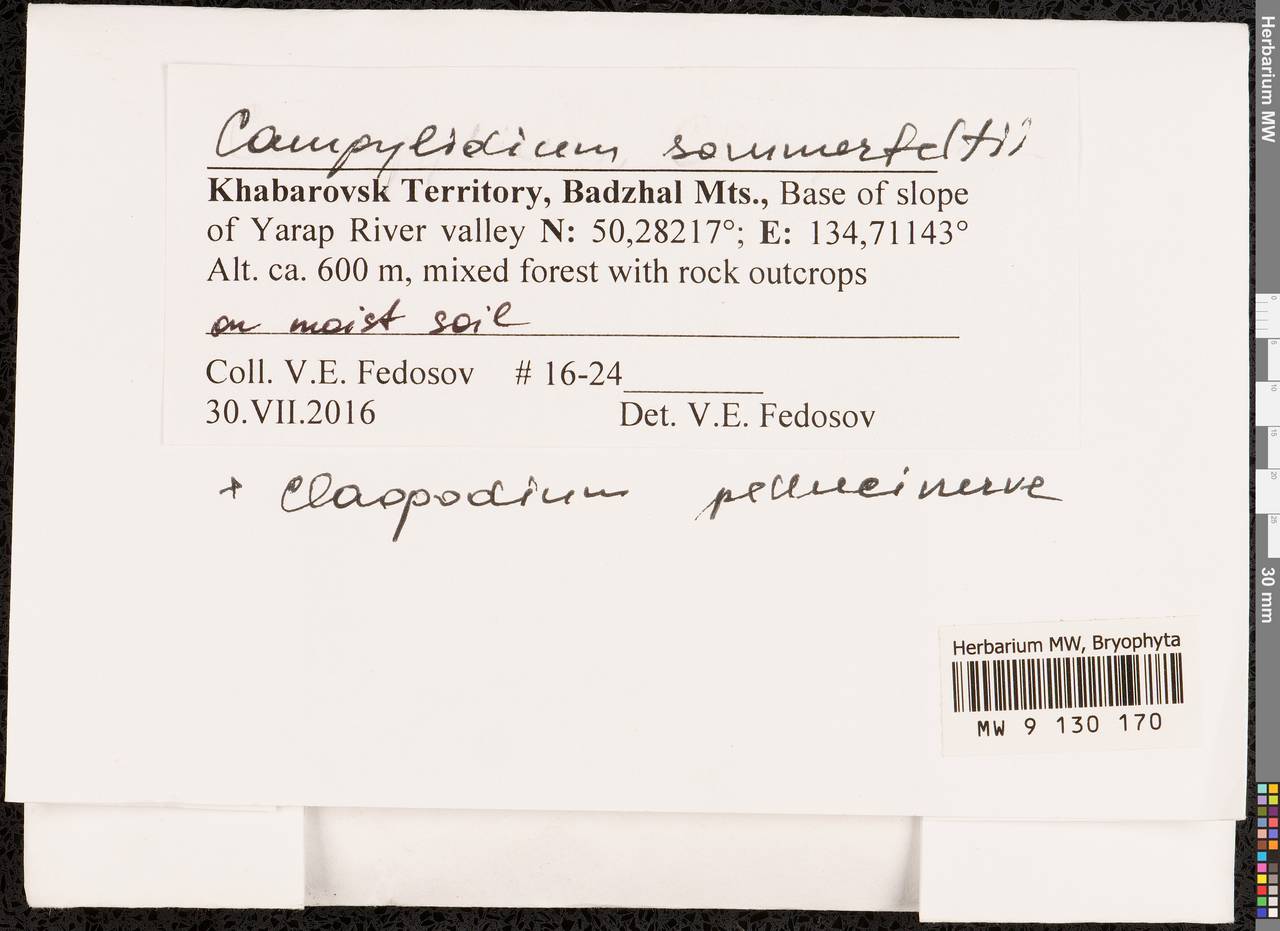 Campylidium sommerfeltii
Khabarovsk Territory, Badzhal Mts., Base of slope
of Yarap River valley N: 50,28217°; E: 134,71143°
Alt. ca. 600 m, mixed forest with rock outcrops
on moist soil
Coll. V.E. Fedosov # 16-24
30.VII.2016 Det. V.E. Fedosov
+ Claopodium pellucinerve
Herbarium MW, Bryophyta
MW 9 130 170
Herbarium MW
0
5
10
15
20
25
30 mm